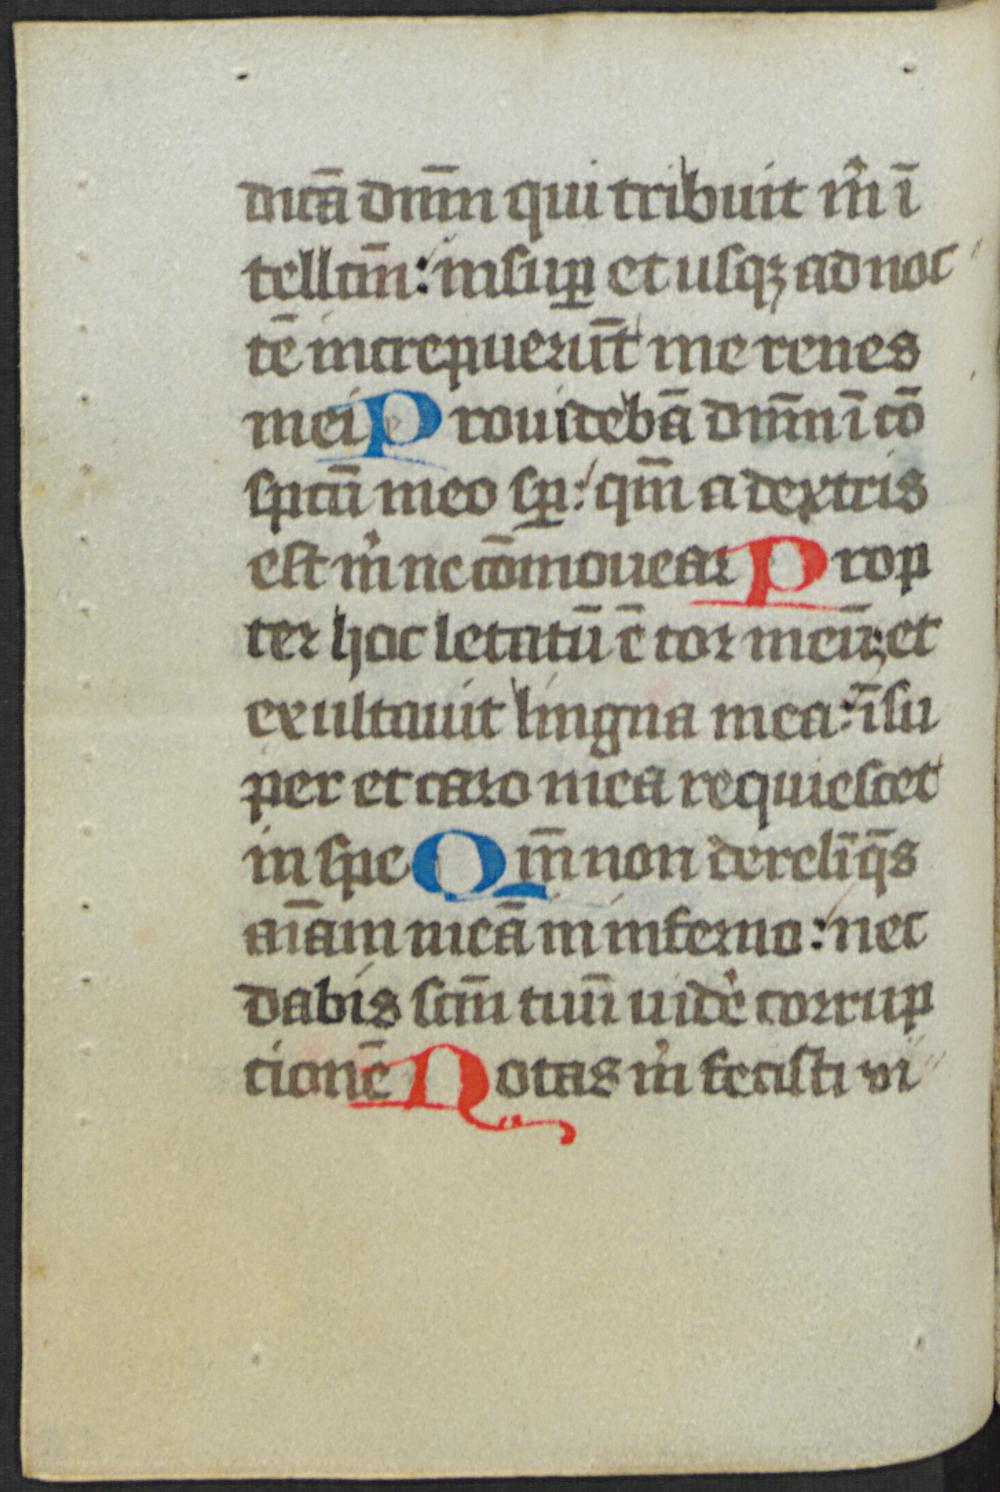 dicā dnm̄ qui tribuit m̊ ī
tellc̄m: insuꝑ et usqꝫ ad noc
tē increpuerūt me renes
mei Prouidebā dnm̄ ī cō
spcū meo sꝑ: qm̄ a dextris
est m̊ ne cōmouear Prop
ter hoc letatū ē cor meū; et
exultauit lingua mea: īsu
per et caro mea requiescet
in spe Qm̄ non derelīq̄s
aīam meā in inferno: nec
dabis scm̄ tuū uidē corrup
cionē Notas m̊ fecisti vi